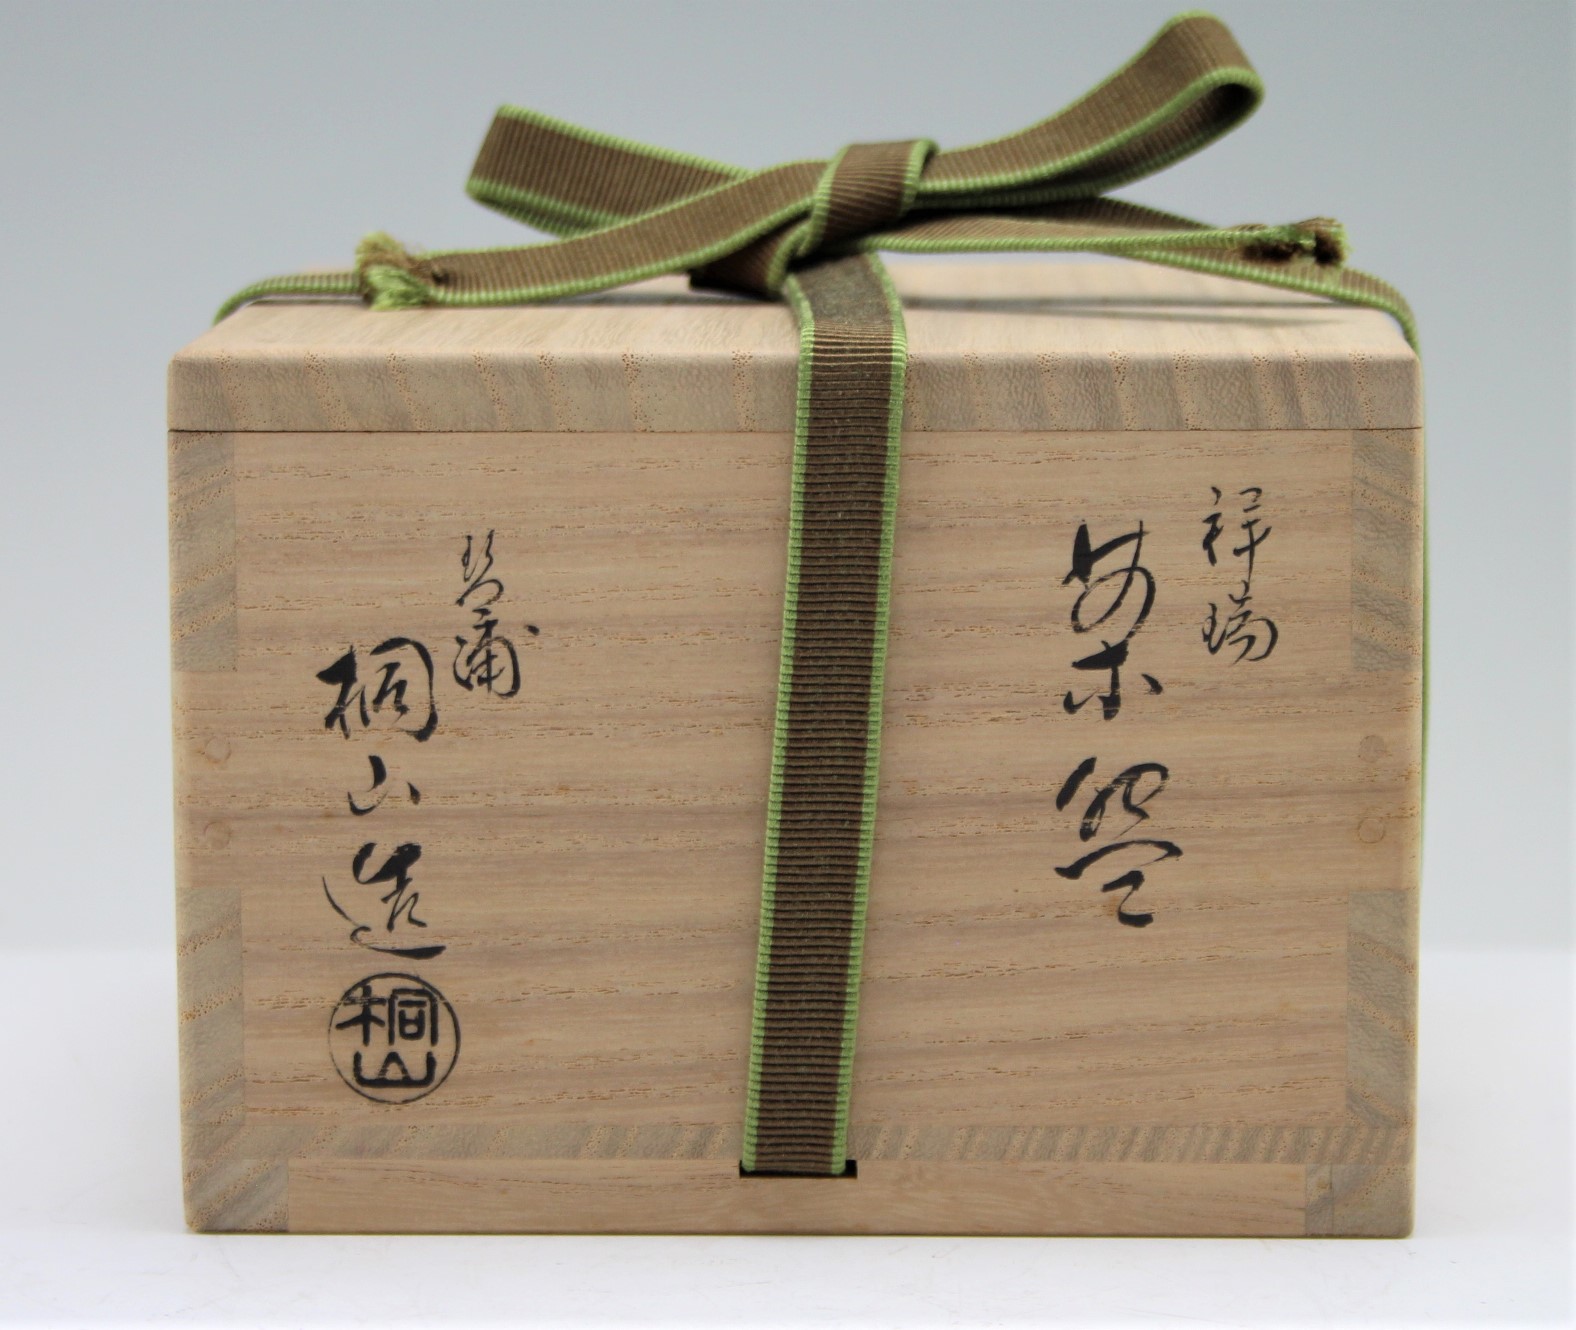 祥瑞
茶盌
琴浦
桐山造
桐山